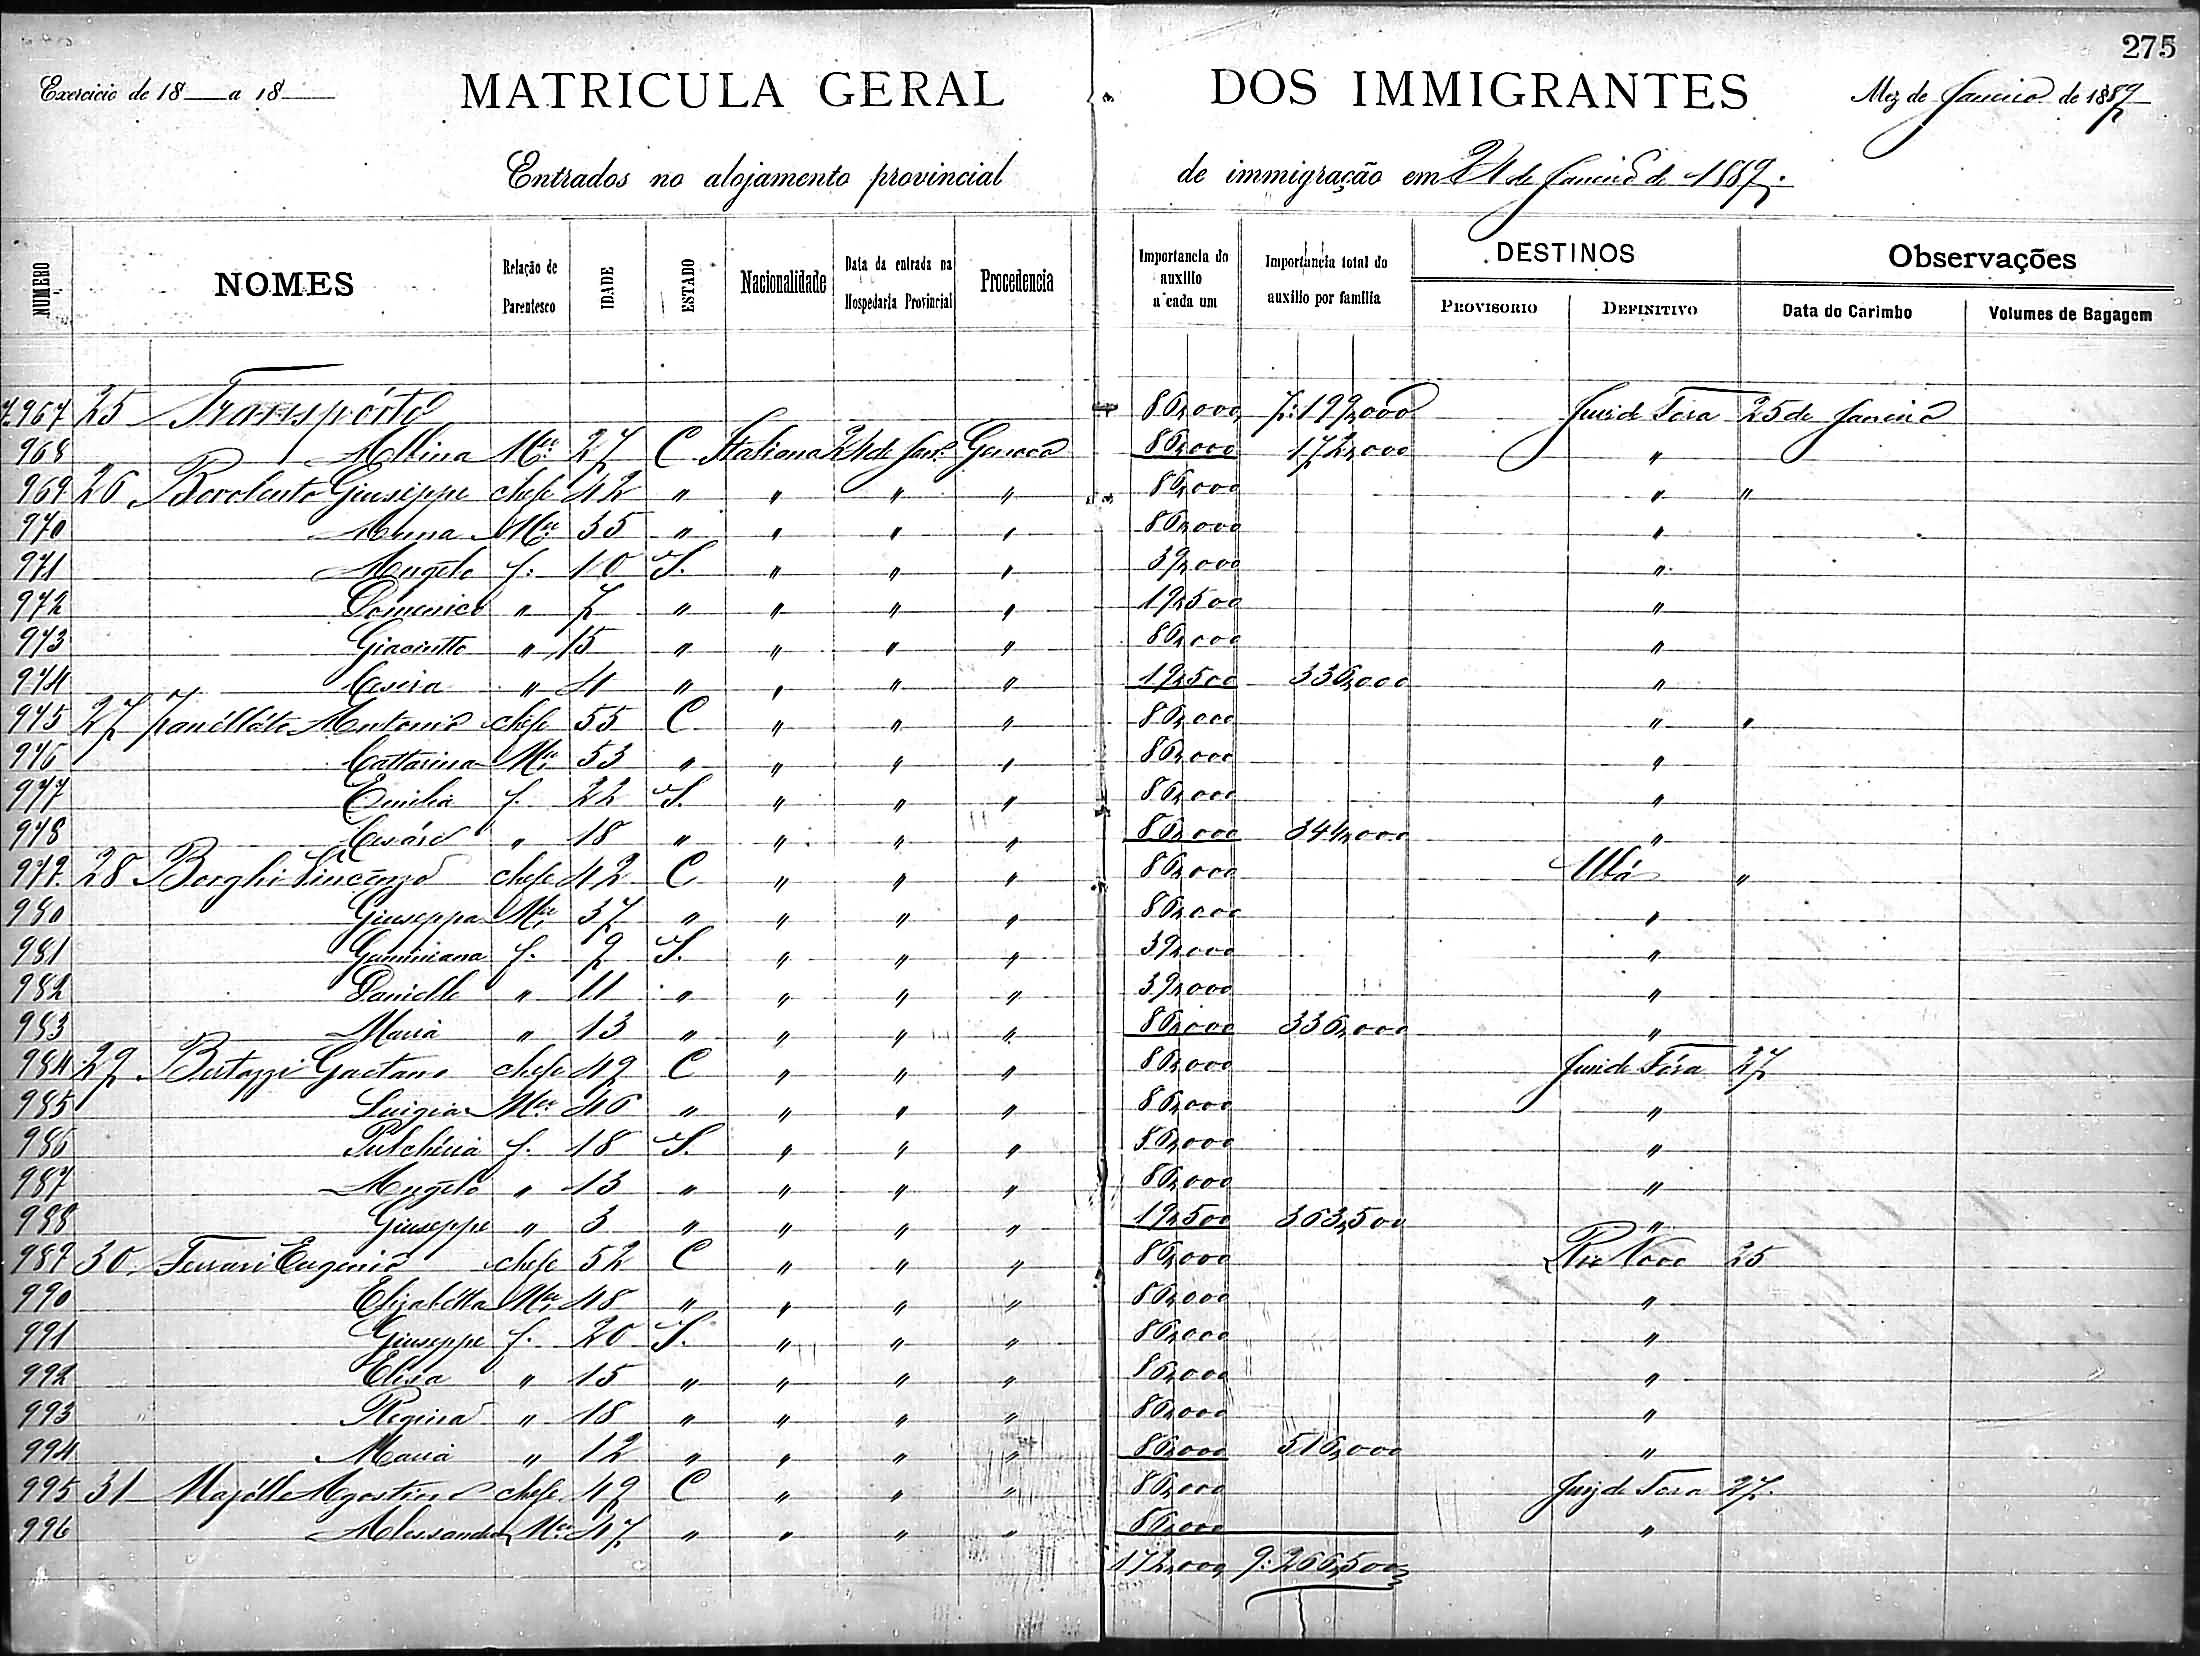 275
Exercicio de 18 a 18
MATRICULA GERAL DOS IMMIGRANTES
Mez de Janeiro de 1889
Entrados no alojamento provincial de immigração em 21 de Janeiro de 1889.
NUMERO NOMES Relação de Parentesco IDADE ESTADO Nacionalidade Data da entrada na Hospedaria Provincial Procedencia Importancia do auxilio a cada um Importancia total do auxilio por familia DESTINOS PROVISORIO DEFINITIVO Observações Data do Carimbo Volumes de Bagagem
7.967 25 Transporte 86,000 7:199,000 Juiz de Fora 25 de Janeiro
968 Albina Mer 27 C Italiana 21 de Janº Genova 86,000 172,000 "
969 26 Giuseppe chefe 42 " " " " 86,000 " "
970 Anna Mer 35 " " " " 86,000 "
971 Angelo f. 10 S. " " " 39,000 "
972 Domenico " 7 " " " " 19,500 "
973 " 15 " " " " 86,000 "
974 " 4 " " " " 19,500 336,000 "
975 27 Antonio chefe 55 C " " " 86,000 " "
976 Cattarina Mer 53 " " " " 86,000 "
977 Emilia f. 22 S. " " " 86,000 "
978 " 18 " " " " 86,000 344,000 "
979 28 Borghi Vincenzo chefe 42 C " " " 86,000 Ubá "
980 Giuseppa Mer 37 " " " " 86,000 "
981 f. 9 S. " " " 39,000 "
982 Danielle " 11 " " " " 39,000 "
983 Maria " 13 " " " " 86,000 336,000 "
984 29 Bertazzi Gaetano chefe 49 C " " " 86,000 Juiz de Fóra 27
985 Luigia Mer 46 " " " " 86,000 "
986 Pulchéria f. 18 S. " " " 86,000 "
987 Angelo " 13 " " " " 86,000 "
988 Giuseppe " 3 " " " " 19,500 363,500 "
989 30 Ferrari Eugenio chefe 52 C " " " 86,000 Rio Novo 25
990 Elizabetta Mer 48 " " " " 86,000 "
991 Giuseppe f. 20 S. " " " 86,000 "
992 Elisa " 15 " " " " 86,000 "
993 Regina " 18 " " " " 86,000 "
994 Maria " 12 " " " " 86,000 516,000 "
995 31 Agostino chefe 49 C " " " 86,000 Juiz de Fora 27.
996 Alessandra Mer 47 " " " " 86,000 "
172,000 9:266,500